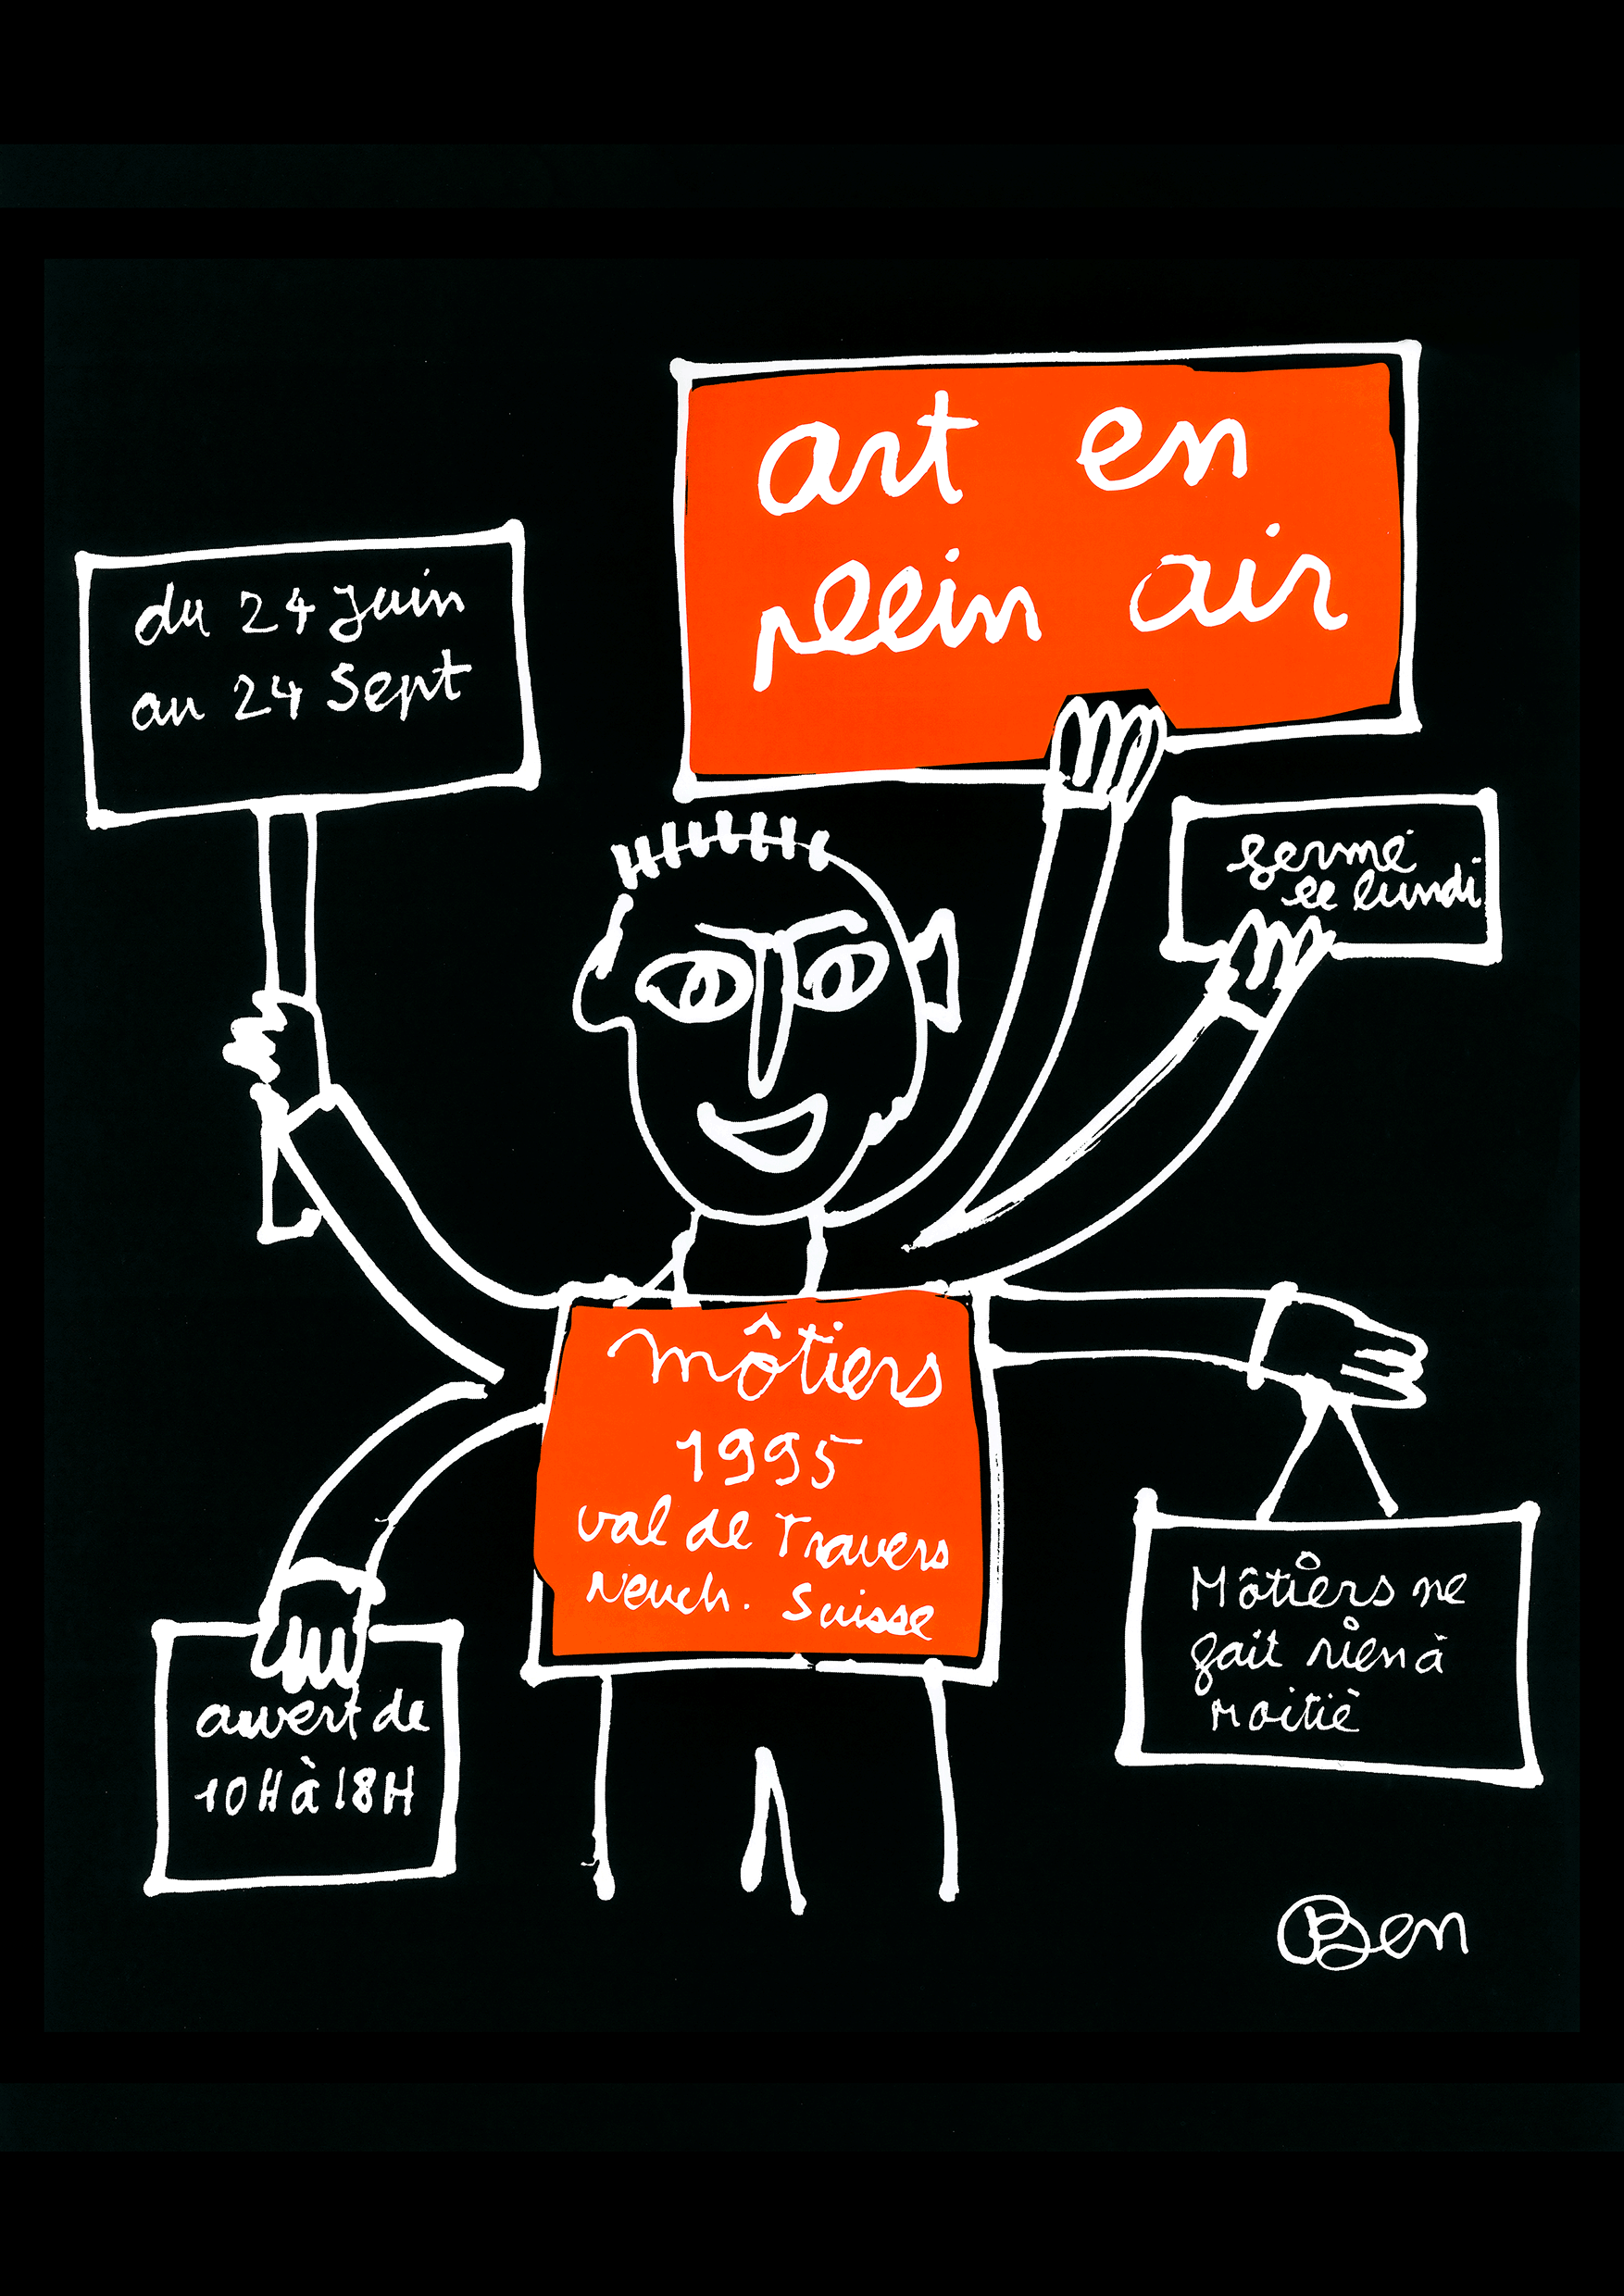 art en
plein air
du 24 Juin
au 24 Sept
fermé
le lundi
môtiers
1995
val de Travers
Neuch. Suisse
ouvert de
10H à 18H
Môtiers ne
fait rien à
Moitié
Ben